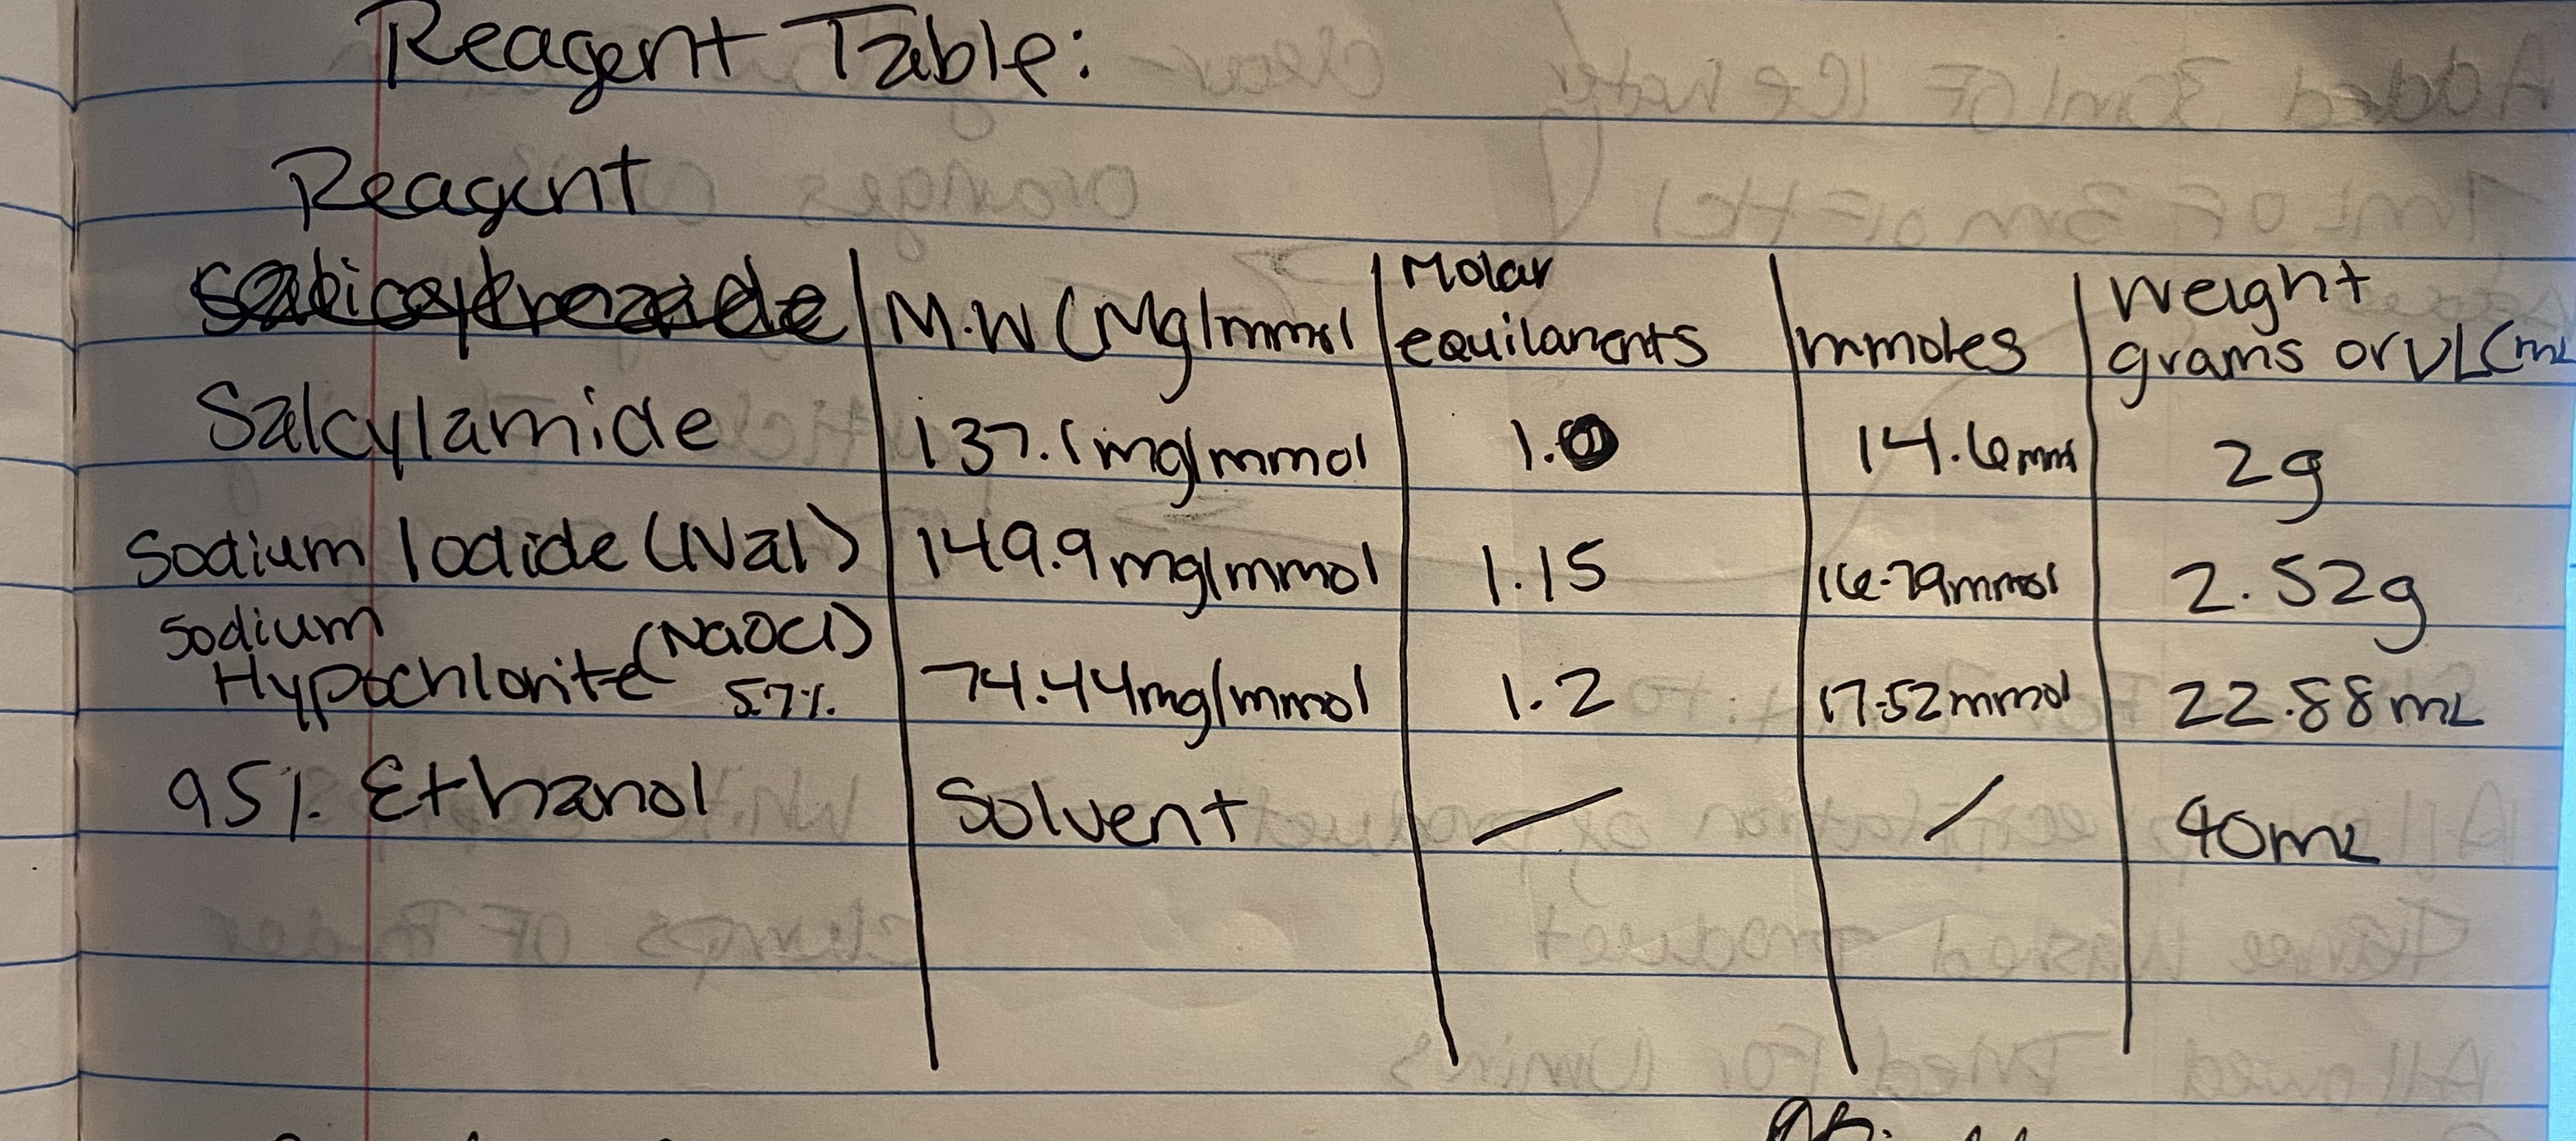 Reagent Table:
Reagent
M.W (Mg/mmol
Molar equilanents
mmoles
Weight grams or VL(mL
Salcylamide 137.1mg/mmol 1.0 14.6mm 2g
Sodium Iodide (NaI) 149.9mg/mmol 1.15 16.79mmol 2.52g
Sodium Hypochlorite (NaOCl) 5.7% 74.44mg/mmol 1.2 17.52mmol 22.88mL
95% Ethanol Solvent — / 40mL